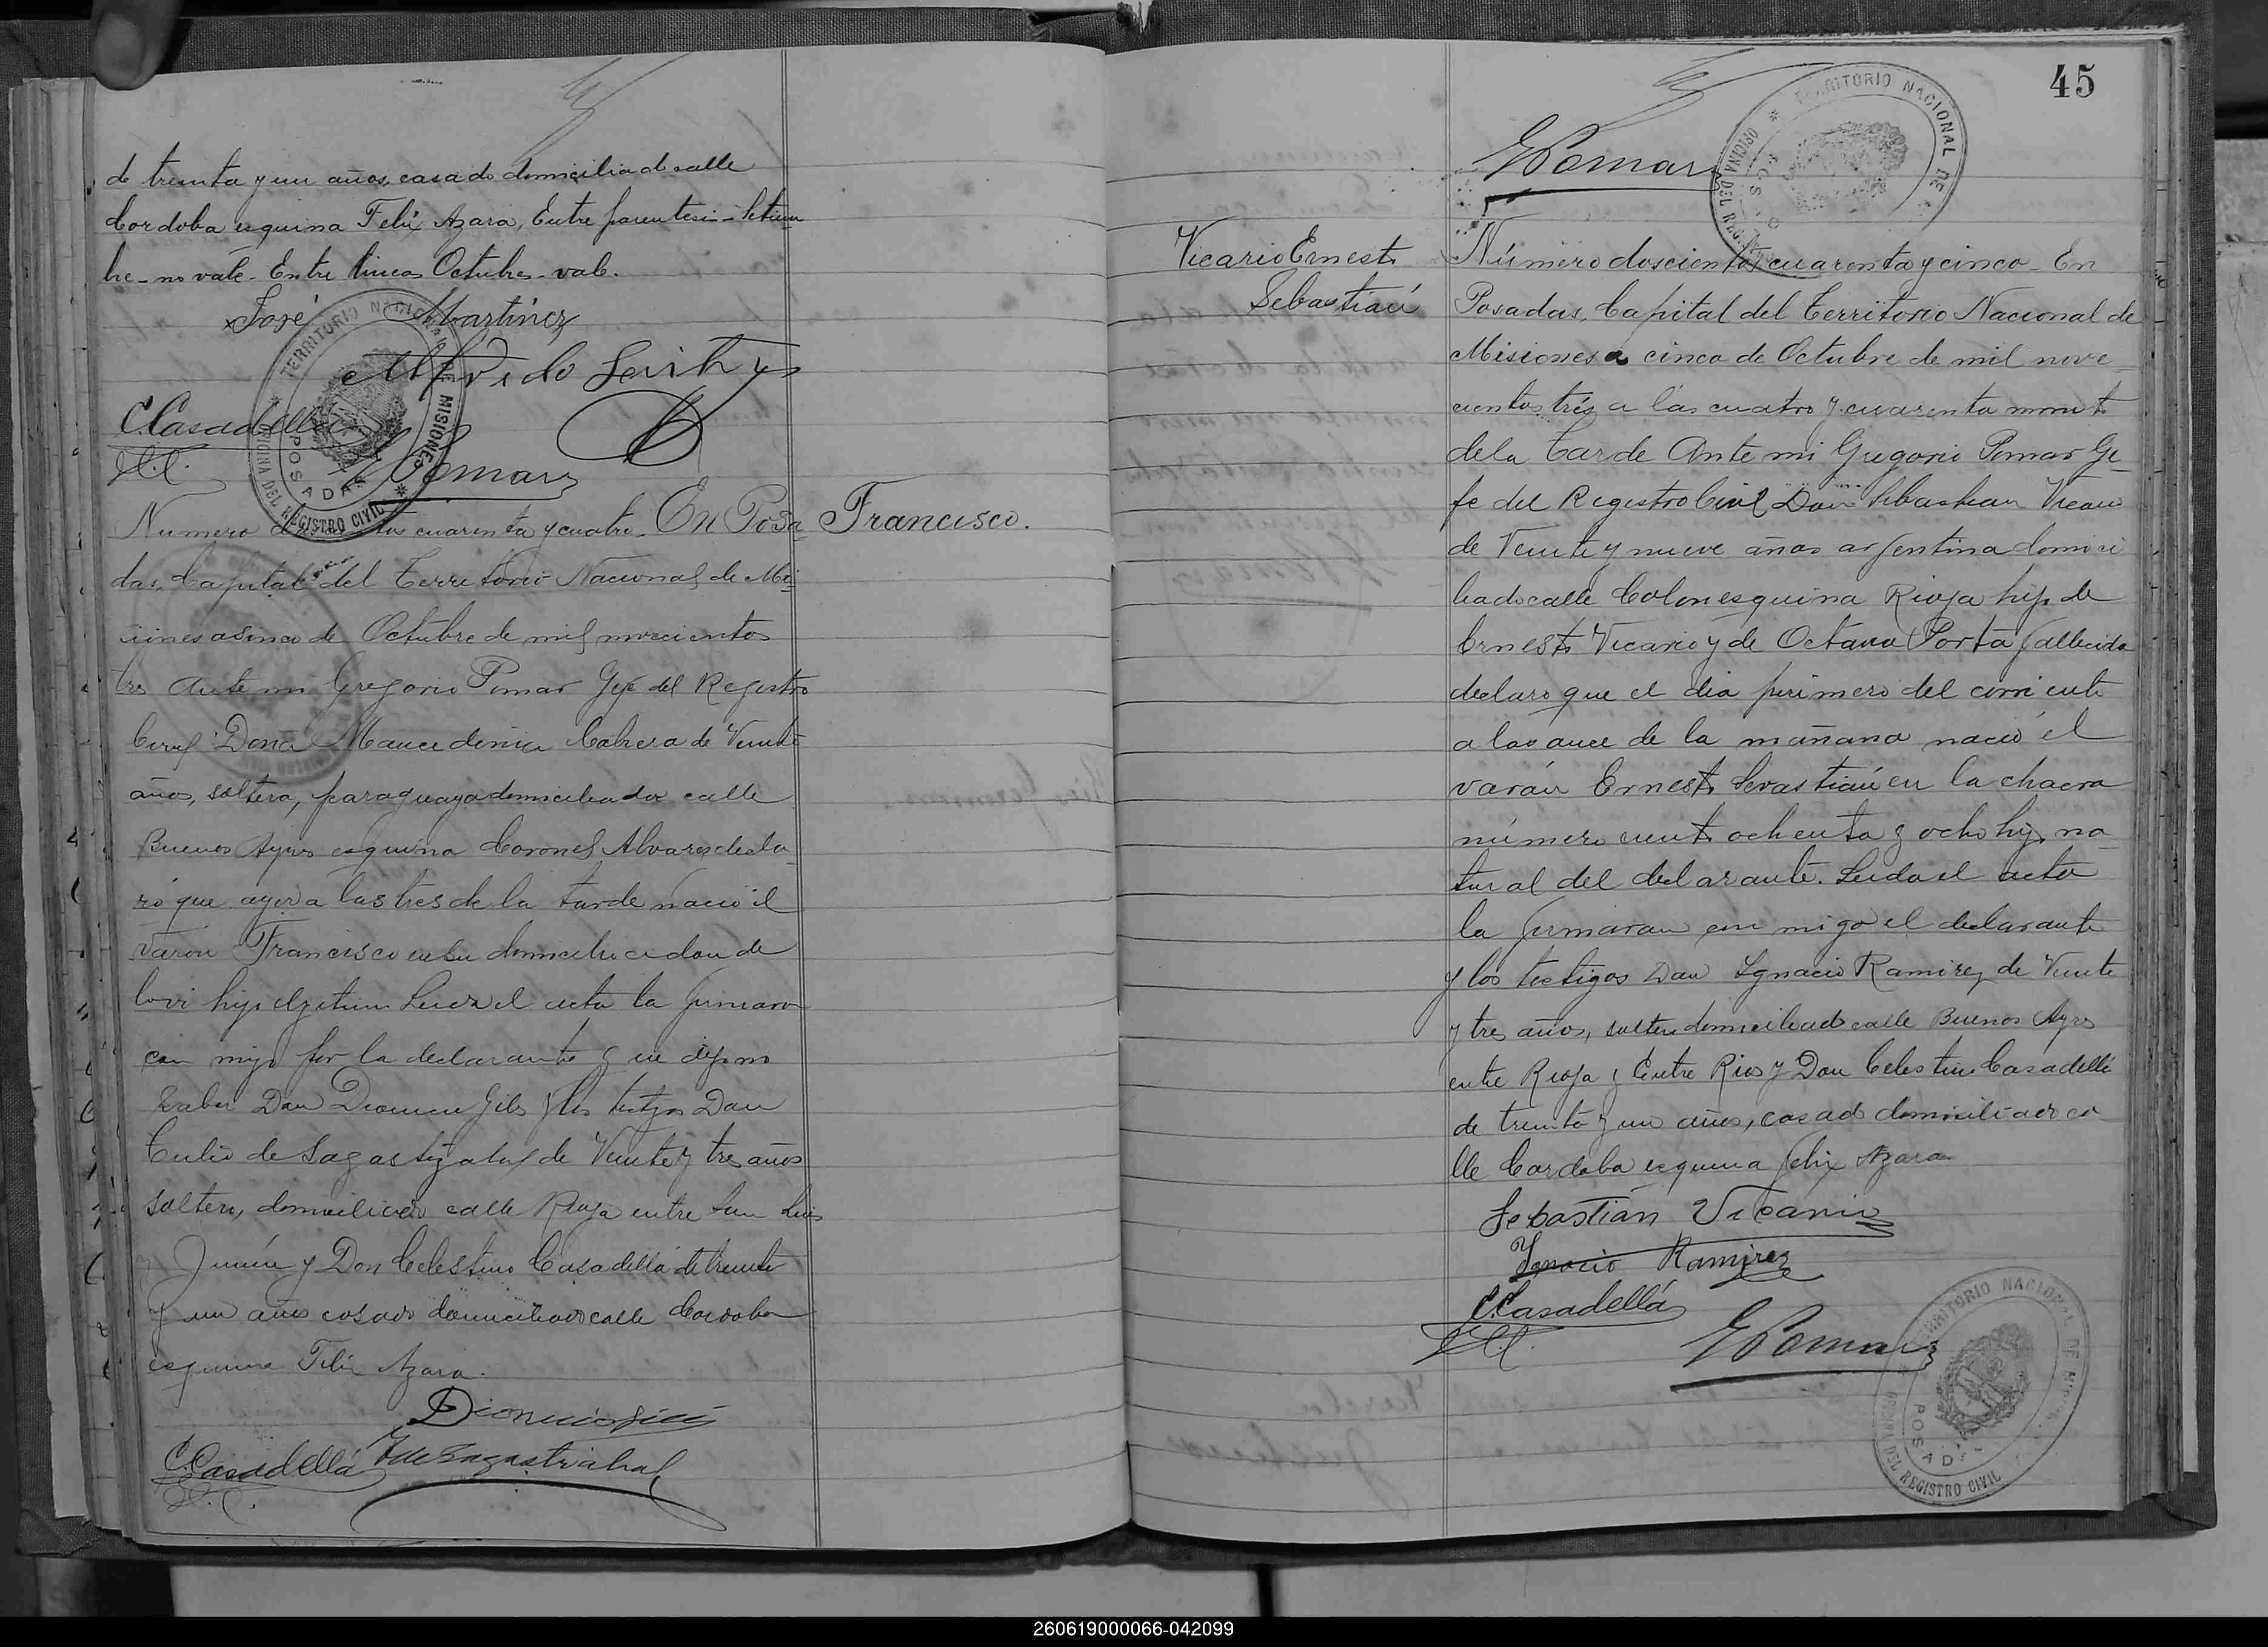 de treinta y un años, casado domiciliado calle
Cordoba esquina Felix Azara, Entre parentesis - Setiem
bre - no vale - Entre lineas Octubre - vale.
José Martinez
Alfredo
C. Casadellá
G Pomar
TERRITORIO NACIONAL DE MISIONES
OFICINA DEL REGISTRO CIVIL
POSADAS
Numero doscientos cuarenta y cuatro. En Posa
Francisco.
das, Capital del Territorio Nacional de Mi
ciones a sinco de Octubre de mil novecientos
tres ante mi Gregorio Pomar Gefe del Registro
Civil Doña Maucedonia Cabrera de Veinte
años, soltera, paraguaya domiciliada calle
Buenos Ayres esquina Coronel Alvarez decla
ró que ayer a las tres de la tarde nacio el
varon Francisco en su domicilio a donde
lo vi hijo Leida el acta la firmaron
con migo por la declarante que dijo no
saber Don los testigos Don
Tulio de Sagastizabal de Veinte y tres años
soltero, domiciliado calle Rioja entre San Luis
y Junin y Don Celestino Casadellá de treinta
y un años casado domiciliado calle Cordoba
esquina Felix Azara.
C. Casadellá
T de Sagastizabal
45
G Pomar
TERRITORIO NACIONAL DE
OFICINA DEL
Vicario Ernesto
Sebastián
Número doscientos cuarenta y cinco - En
Posadas, Capital del Territorio Nacional de
Misiones a cinco de Octubre de mil nove
cientos trés a las cuatro y cuarenta minuto
de la tarde Ante mi Gregorio Pomar Ge
fe del Registro Civil Don Sebastian Vicario
de Veinte y nueve años argentino domici
liado calle Colon esquina Rioja hijo de
Ernesto Vicario y de Octava Porta fallecida
declaro que el dia primero del corriente
a las once de la mañana nació el
varón Ernesto Sevastián en la chacra
número ciento ochenta y ocho hijo na
tural del declarante. Leida el acta
la firmaran con migo el declarante
y los testigos Don Ignacio Ramirez de Veinte
y tres años, soltero domiciliado calle Buenos Ayres
entre Rioja y Entre Rios y Don Celestino Casadellá
de treinta y un años, casado domiciliado ca
lle Cordoba esquina Felix Azara
Sebastián Vicario
Ignacio Ramirez
C. Casadellá
G Pomar
TERRITORIO NACIONAL DE
OFICINA DEL REGISTRO CIVIL
POSADAS
260619000066-042099